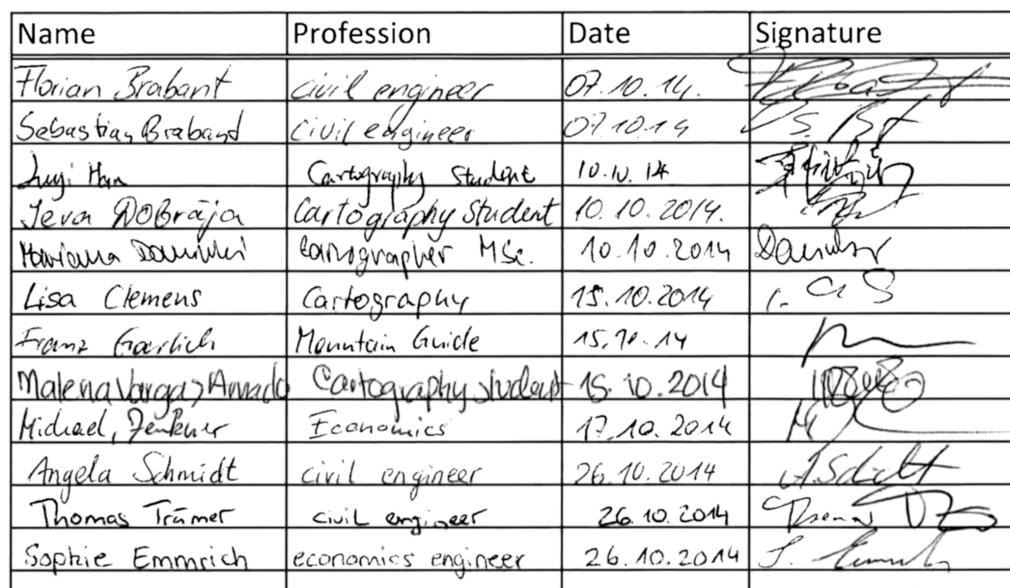 Name Profession Date Signature
Florian Brabant civil engineer 07.10.14.
Sebastian Braband civil engineer 07.10.14
Han Cartography Student 10.10.14
Ieva DOBrāja Cartography Student 10.10.2014.
Cartographer MSc. 10.10.2014
Lisa Clemens Cartography 15.10.2014
Franz Mountain Guide 15.10.14
Malena Vargas Amado Cartography student 15.10.2014
Michael, Economics 17.10.2014
Angela Schmidt civil engineer 26.10.2014 A. Schmidt
Thomas Trümer civil engineer 26.10.2014 Thomas
Sophie Emmrich economics engineer 26.10.2014 S. Emmrich